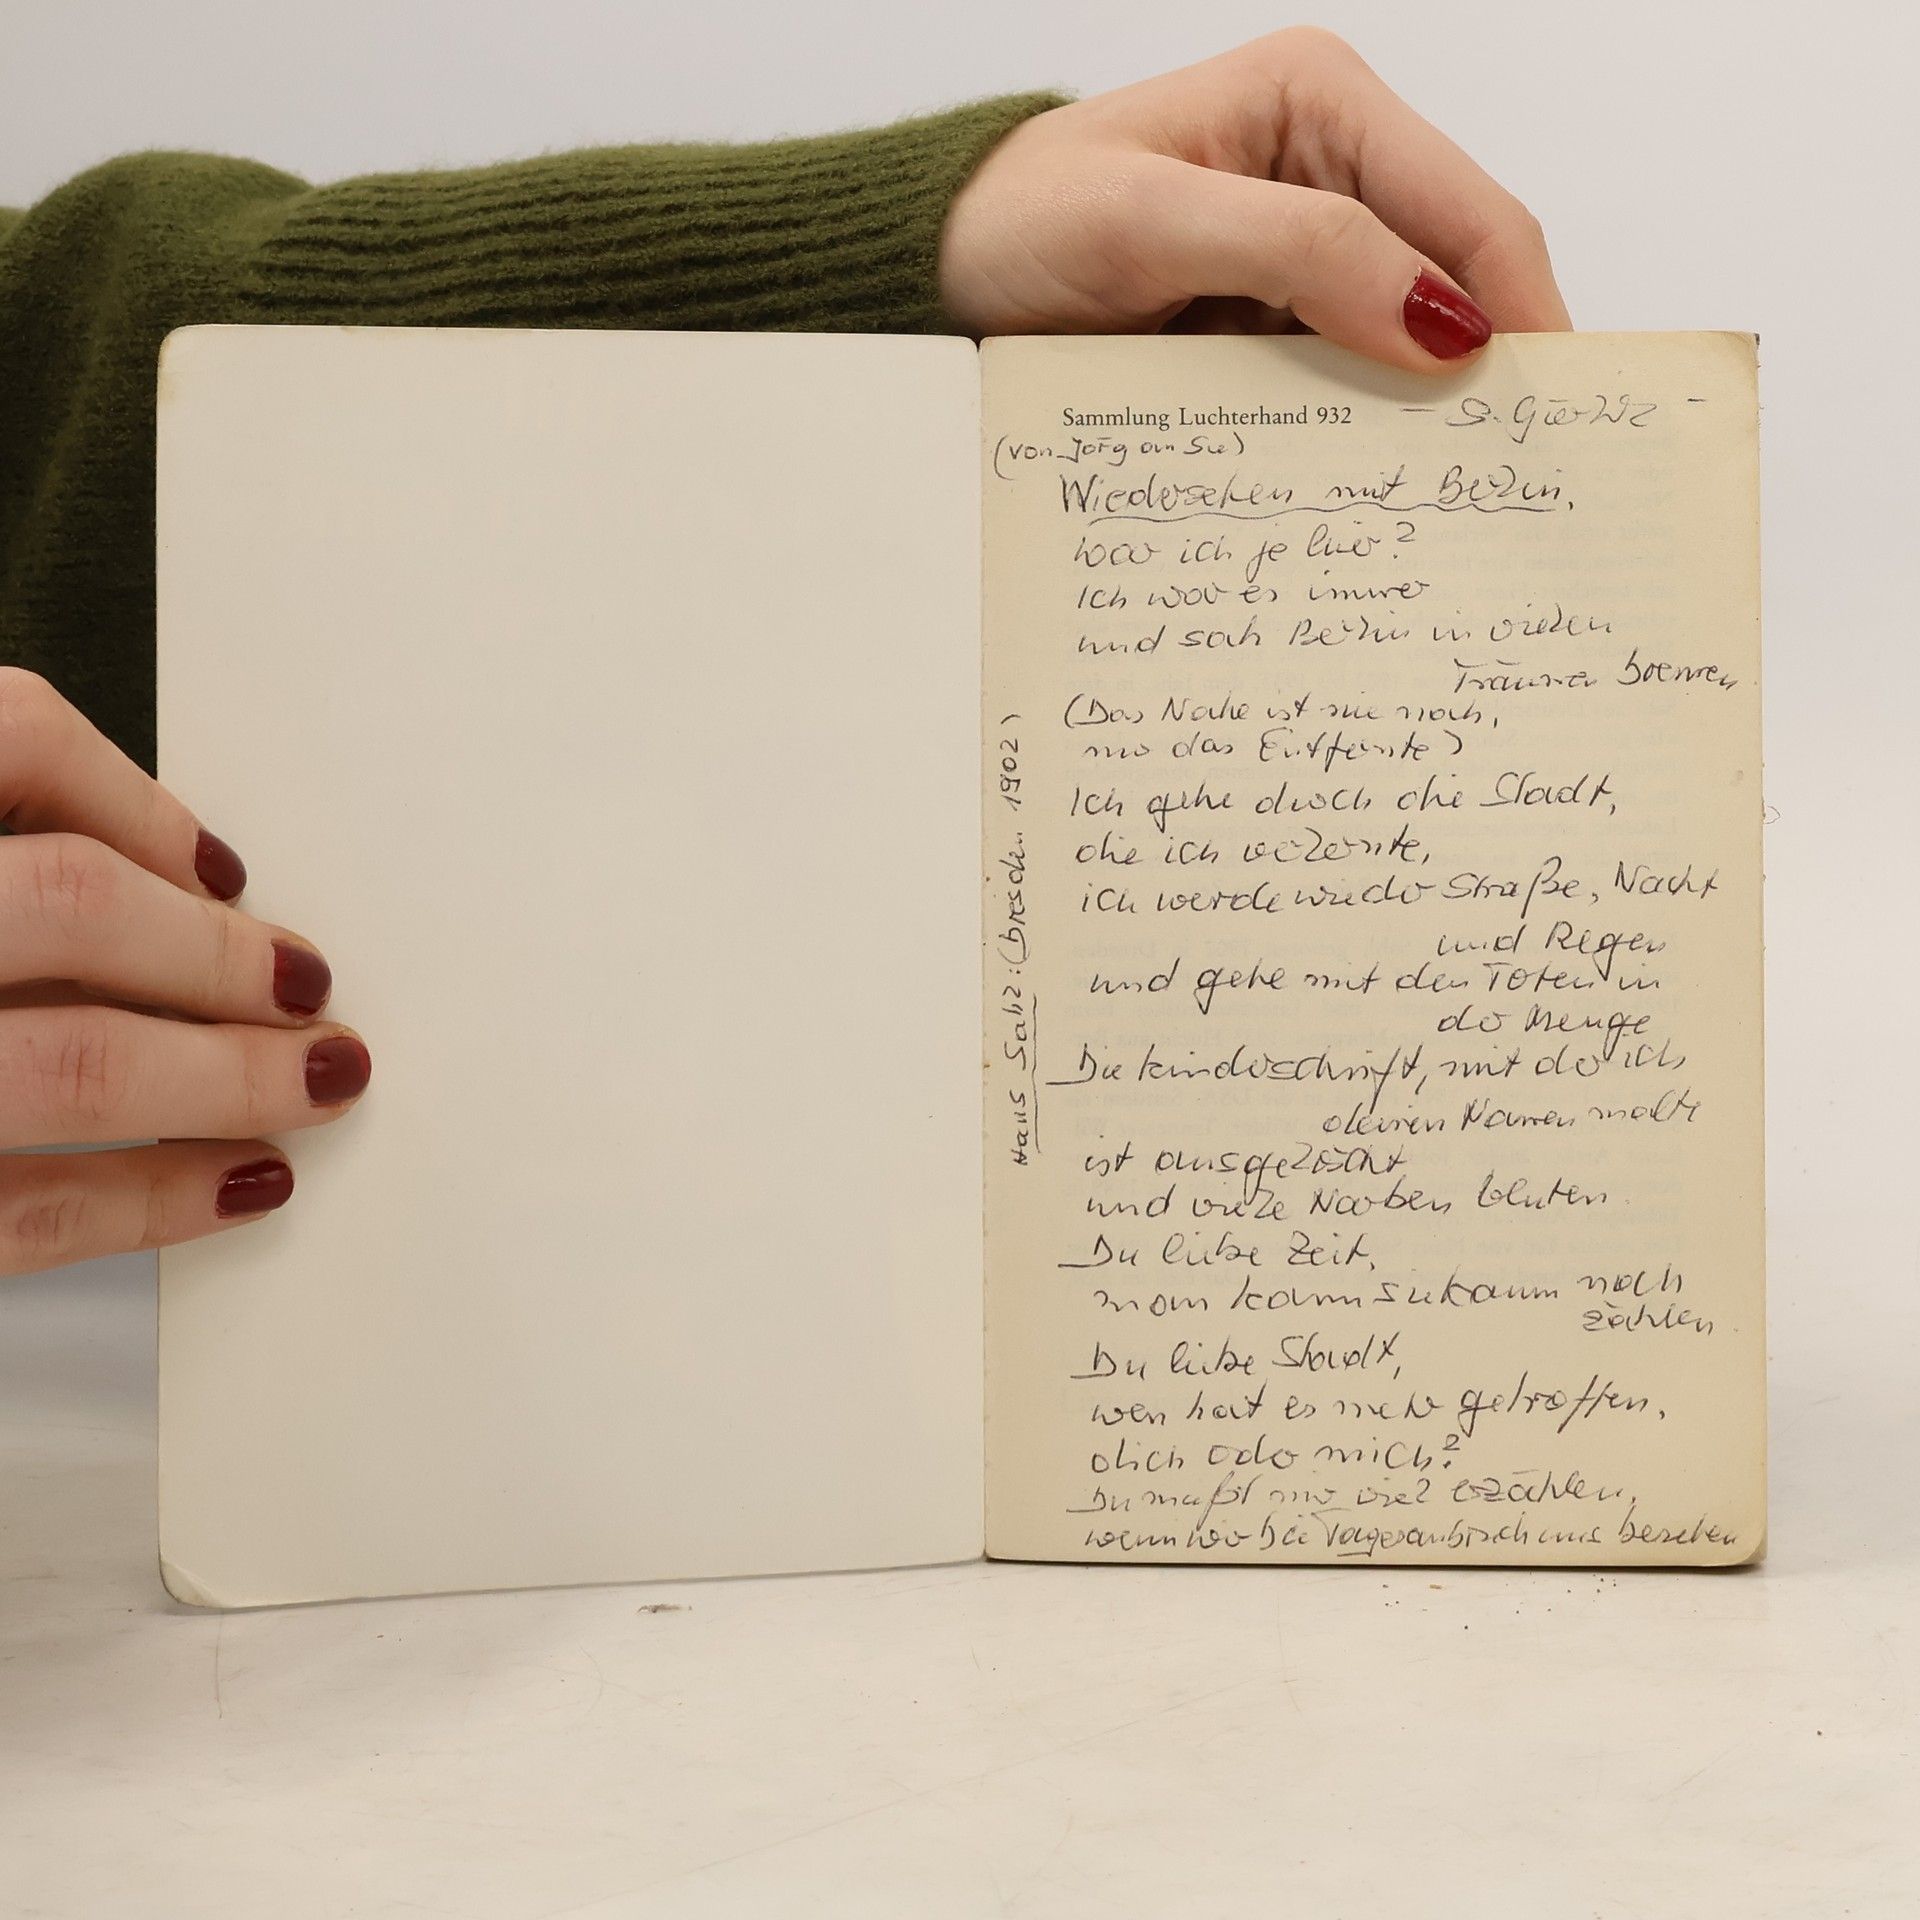 Sammlung Luchterhand 932
(von Jörg an Sie)
Wiedersehen mit Berlin.
War ich je hier?
Ich war es immer
und sah Berlin in vielen
Träumen brennen
(Das Nahe ist nie nah,
nur das Entfernte)
Ich gehe durch die Stadt,
die ich verlernte,
ich werde wieder Straße, Nacht
und Regen
und gehe mit den Toten in
der Menge
Die Kinderschrift, mit der ich
deinen Namen malte
ist ausgelöscht
und viele Narben bluten.
Du liebe Zeit,
man kann sie kaum noch
zählen.
Du liebe Stadt,
wen hat es mehr getroffen,
dich oder mich?
Du mußt mir viel erzählen,
wenn wir bei Tagesanbruch uns besehen
Hans Sahl: (Dresden 1902)